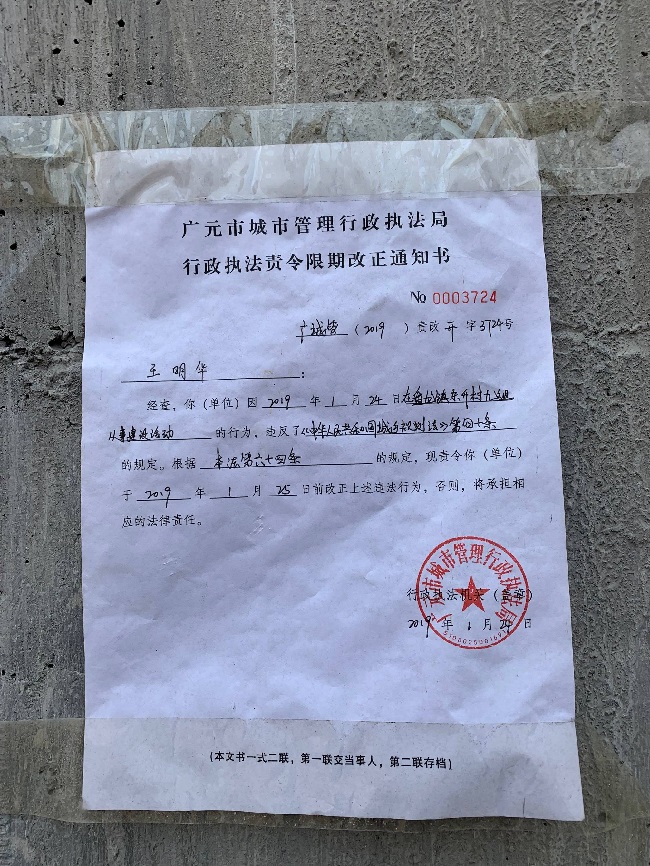 广元市城市管理行政执法局
行政执法责令限期改正通知书
No 0003724
广城管（2019）责改 开 字3724号
王明华：
经查，你（单位）因2019年1月24日在盘龙镇东升村九组
从事建设活动的行为，违反了《中华人民共和国城乡规划法》第四十条
的规定。根据 本法第六十四条 的规定，现责令你（单位）
于2019年1月25日前改正上述违法行为，否则，将承担相
应的法律责任。
广元市城市管理行政执法局
行政执法机关（盖章）
2019年1月24日
（本文书一式二联，第一联交当事人，第二联存档）